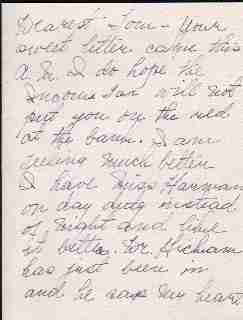 Dearest Tom - Your
sweet letter came this
A.M. I do hope the
Income Tax will not
put you on the red
at the bank. I am
feeling much better
I have Miss Harman
on day duty instead
of night and like
it better. Dr.
has just been in
and he says my heart